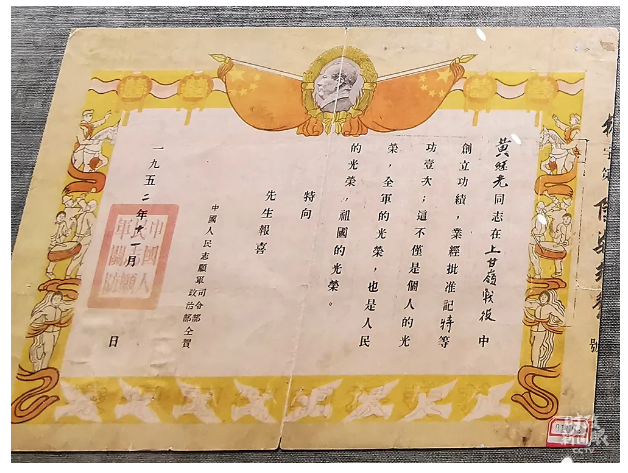 黃継光同志在上甘嶺戰役中
創立功績，業經批准記特等
功壹次；這不僅是個人的光
榮，全軍的光榮，也是人民
的光榮，祖國的光榮。
特向
先生報喜
中國人民志願軍司令部
政治部仝賀
一九五二年十一月
日
號